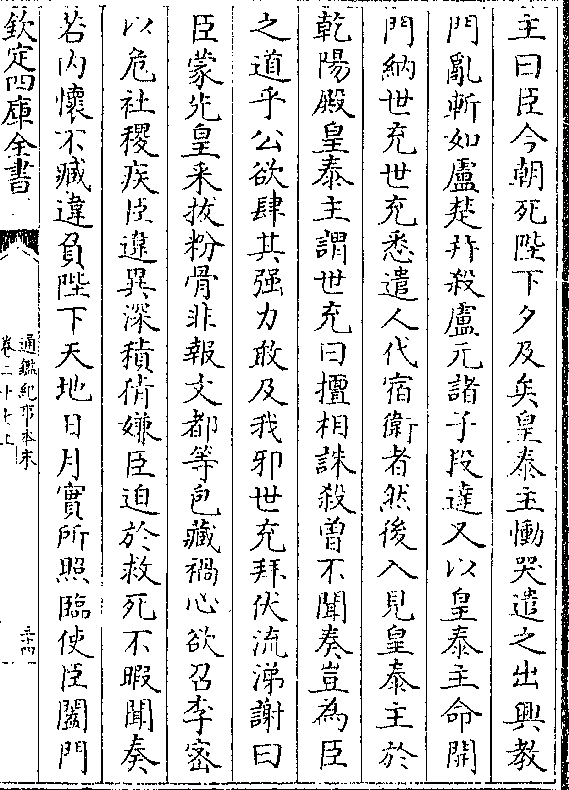 主曰臣今朝死陛下夕及矣皇泰主慟哭遣之出興教
門亂斬如盧楚并殺盧元諸子段達又以皇泰主命開
門納世充世充悉遣人代宿衛者然後入見皇泰主於
乾陽殿皇泰主謂世充曰擅相誅殺曾不聞奏豈為臣
之道乎公欲肆其强力敢及我邪世充拜伏流涕謝曰
臣蒙先皇采拔粉骨非報文都等包藏禍心欲召李密
以危社稷疾臣違異深積猜嫌臣迫於救死不暇聞奏
若内懷不臧違負陛下天地日月實所照臨使臣闔門
欽定四庫全書
通鑑紀事本末
卷二十七上
三十四